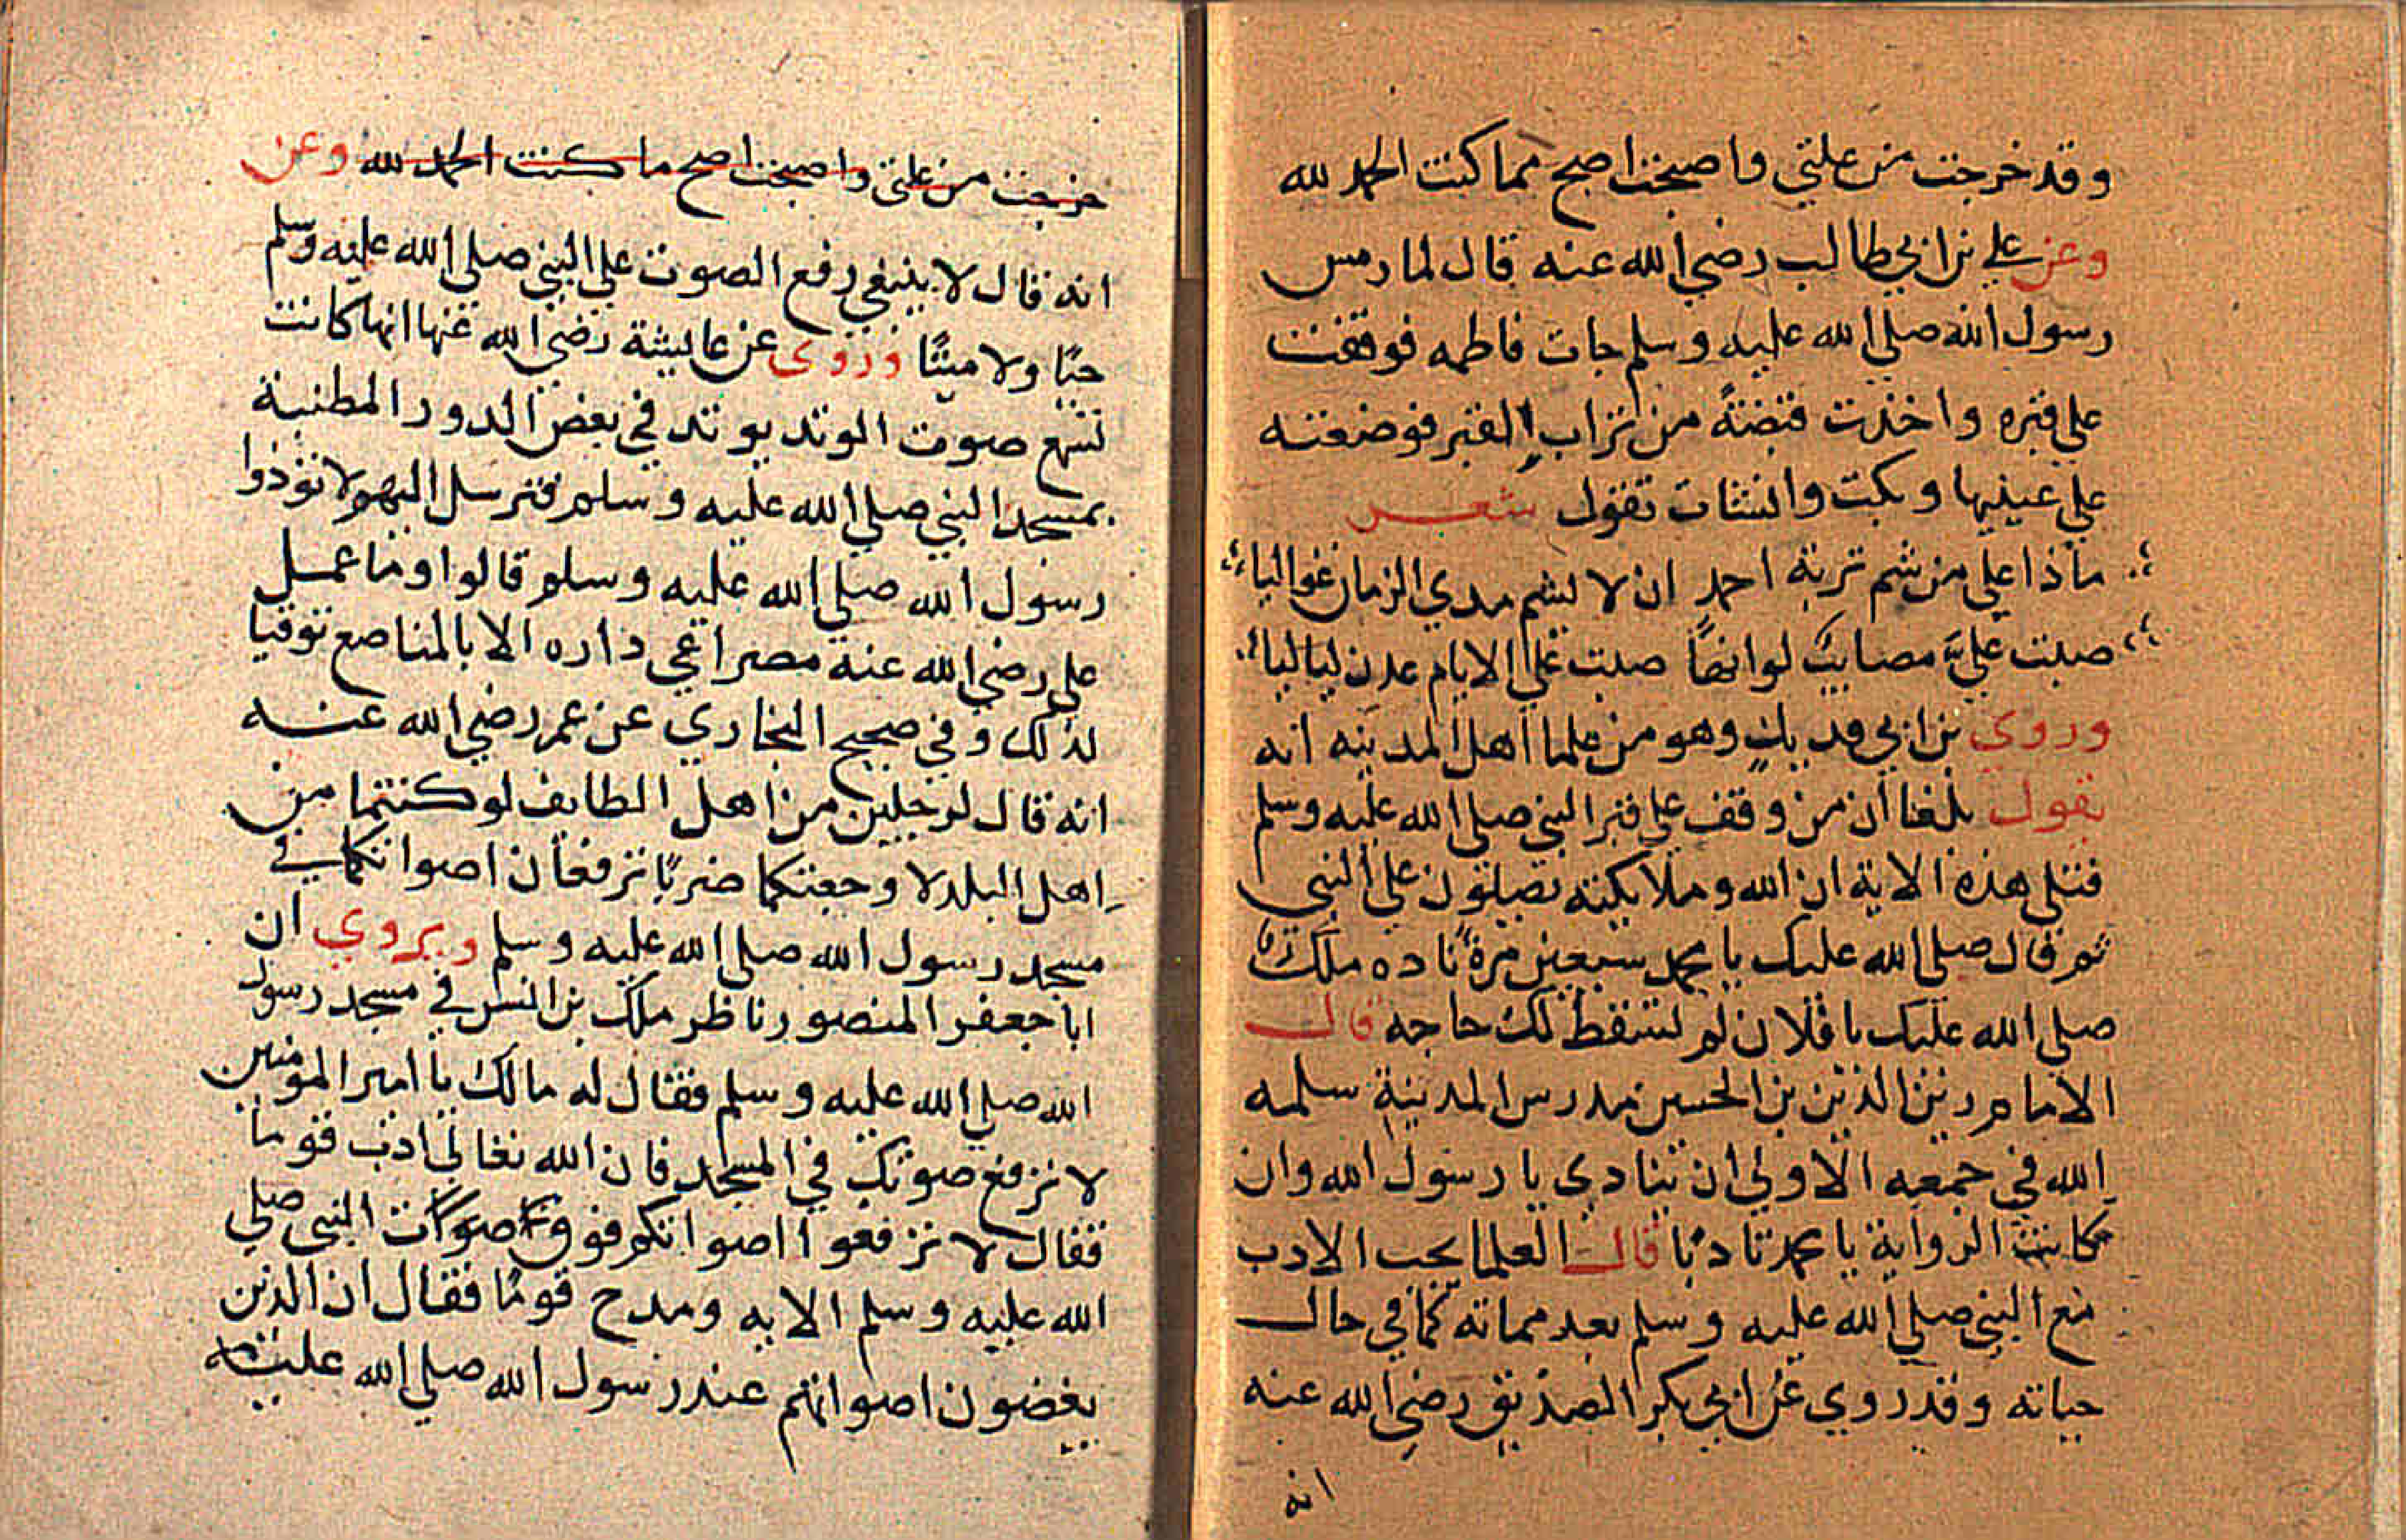 وقد خرجت من علتي واصبحت اصح مما كنت الحمد لله
وعن علي بن ابي طالب رضي الله عنه قال لما رمس
رسول الله صلي الله عليه وسلم جات فاطمه فوقفت
علي قبره واخذت قبضةً من تراب القبر فوضعته
علي عينيها وبكت وانشات تقول شعر
ماذا علي من شم تربة احمد ان لا يشم مدي الزمان غواليا
صبت عليَّ مصايب لوانها صبت علي الايام عدن لياليا
وروي بن ابي فديك وهو من علما اهل المدينه انه
يقول بلغنا ان من وقف علي قبر النبي صلي الله عليه وسلم
فتلي هذه الاية ان الله وملايكته يصلون علي النبي
ثم قال صلي الله عليك يا محمد سبعين مرة ناده ملك
صلي الله عليك يا فلان لم تسقط لك حاجه قال
الامام زين الدين بن الحسين مدرس المدينة سلمه
الله في جمعه الاولي ان ينادي يا رسول الله وان
كانت الرواية يا محمد تادبا قال العلما يجب الادب
مع النبي صلي الله عليه وسلم بعد مماته كما في حال
حياته وقد روي عن ابي بكر الصديق رضي الله عنه
انه
خرجت من علتي واصبحت اصح ما كنت الحمد لله وعن
انه قال لا ينبغي رفع الصوت علي النبي صلي الله عليه وسلم
حيًا ولا ميتًا وروي عن عايشة رضي الله عنها انها كانت
تسمع صوت الوتد يوتد في بعض الدور المطنبة
بمسجد النبي صلي الله عليه وسلم فترسل اليهم لا تؤذوا
رسول الله صلي الله عليه وسلم قالوا وما عمل
علي رضي الله عنه مصراعي داره الا بالمناصع توقيا
لذلك وفي صحيح البخاري عن عمر رضي الله عنه
انه قال لرجلين من اهل الطايف لو كنتما من
اهل البلد لاوجعتكما ضربًا ترفعان اصواتكما في
مسجد رسول الله صلي الله عليه وسلم ويروي ان
ابا جعفر المنصور ناظر ملك بن انس في مسجد رسول
الله صلي الله عليه وسلم فقال له مالك يا امير المومنين
لا ترفع صوتك في المسجد فان الله تعالي ادب قوما
فقال لا ترفعوا اصواتكم فوق صوت النبي صلي
الله عليه وسلم الايه ومدح قومًا فقال ان الذين
يغضون اصواتهم عند رسول الله صلي الله عليه